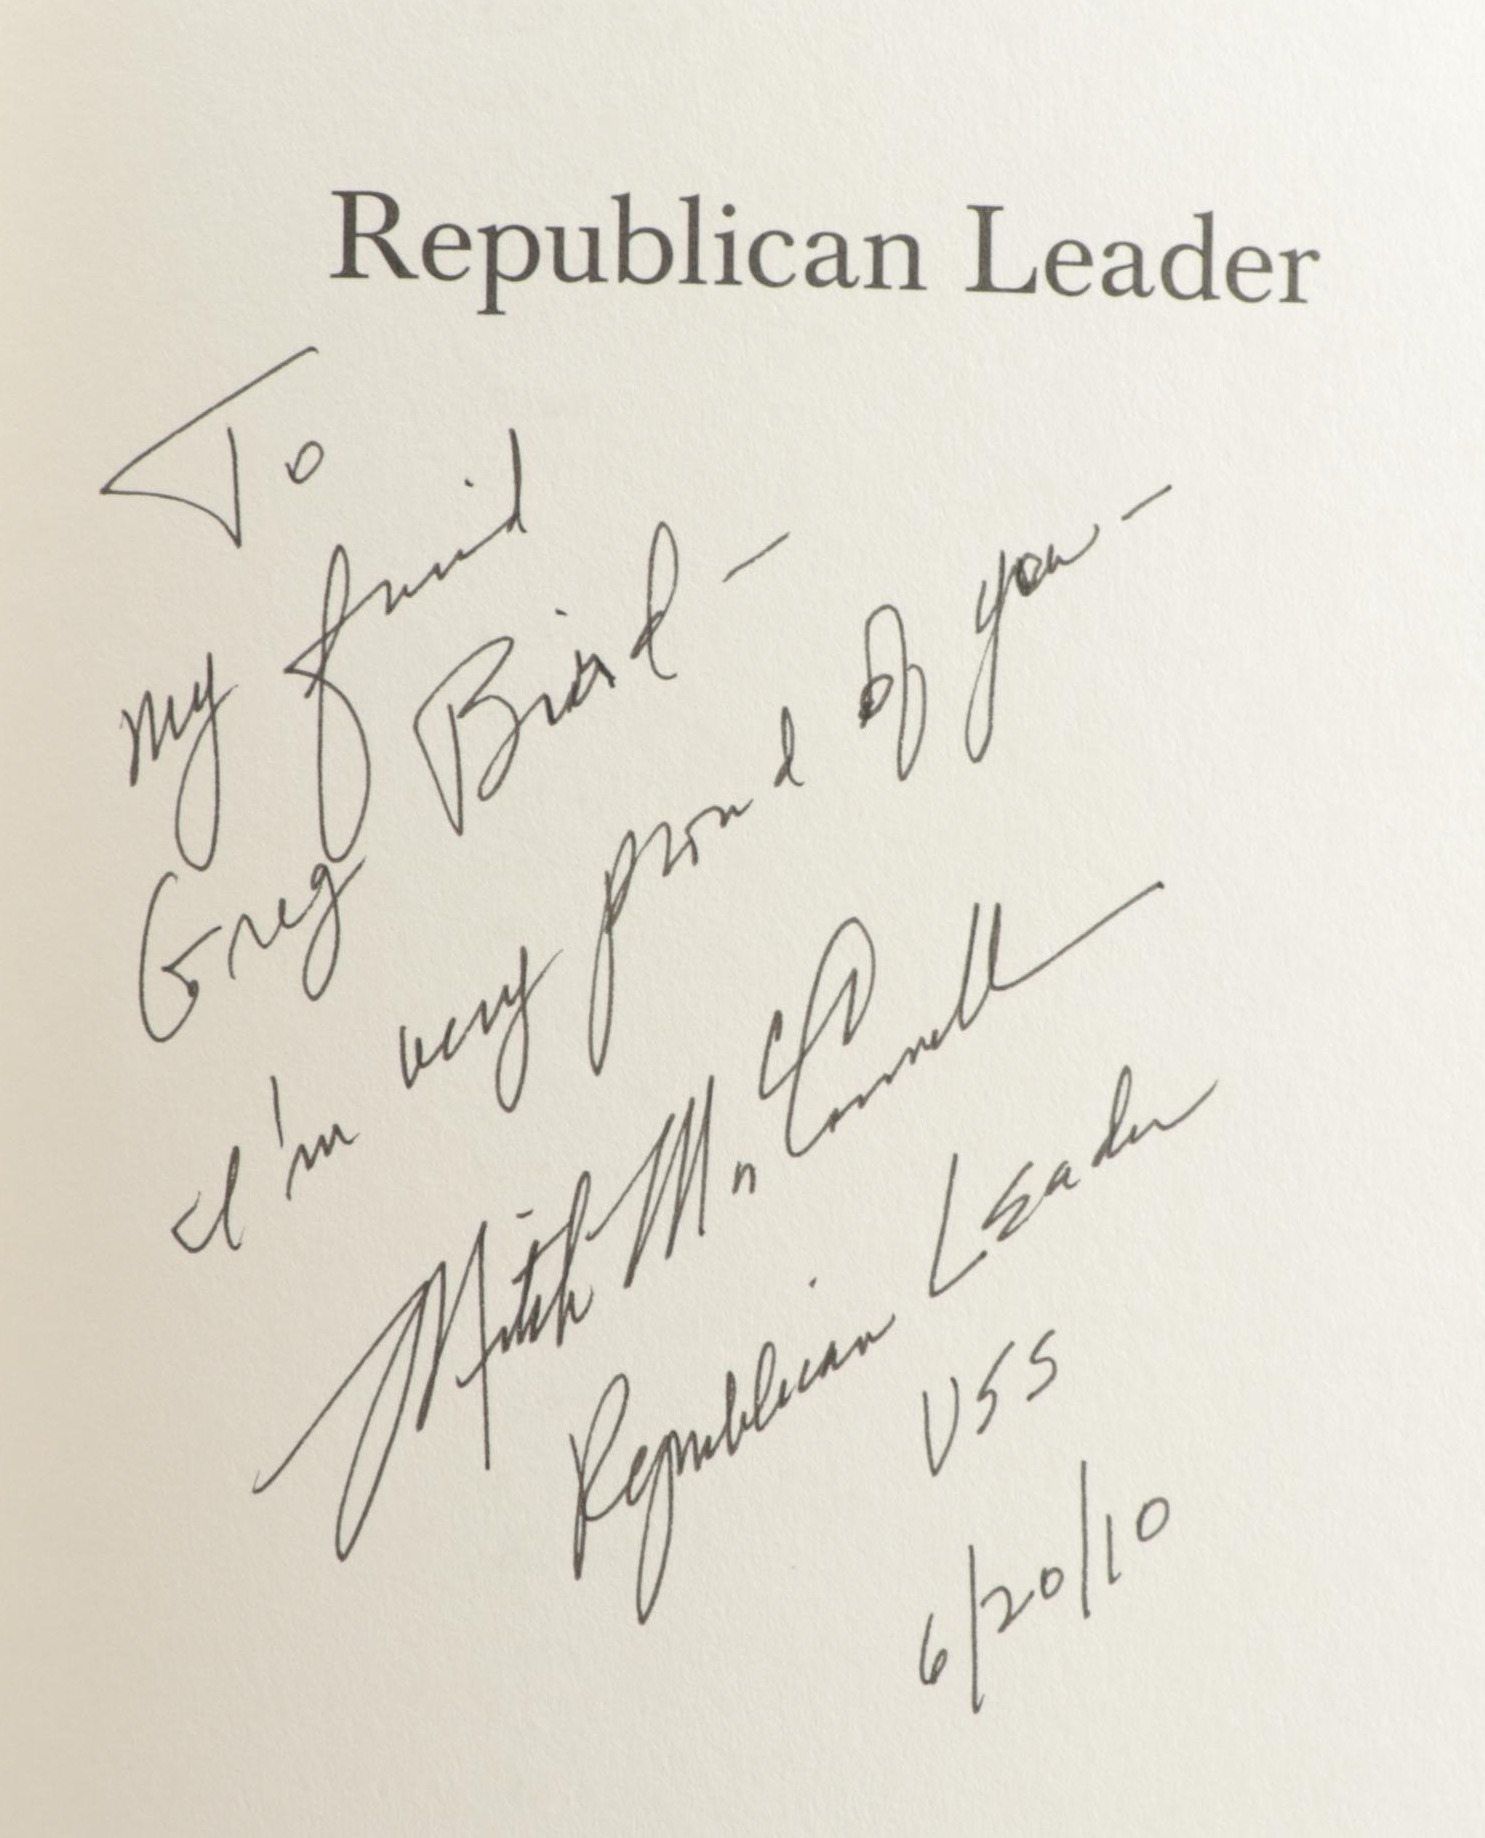 Republican Leader
To
my friend
Greg Baird —
I'm very proud of you —
Mitch McConnell
Republican Leader
USS
6/20/10